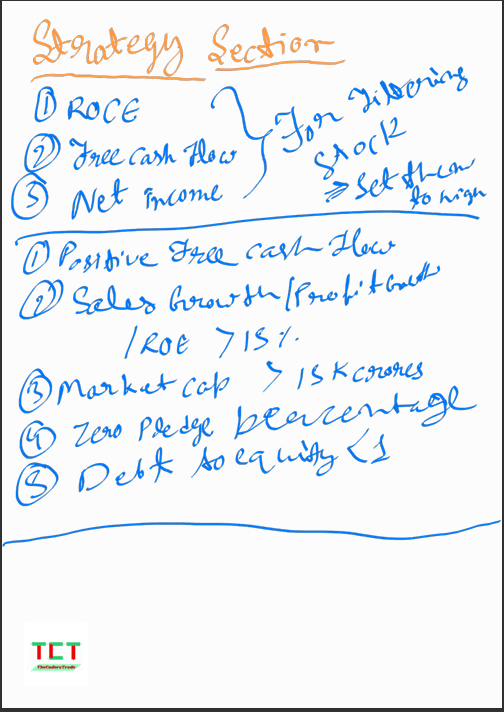 Strategy Section
① ROCE
② Free cash flow
③ Net income
For Filtering
Stock
⇒ Set them
to high
① Positive Free cash flow
② Sales Growth/Profit Growth
/ROE > 15%
③ Market cap > 15K crores
④ Zero Pledge percentage
⑤ Debt to equity < 1
TCT
TheCodersTrade